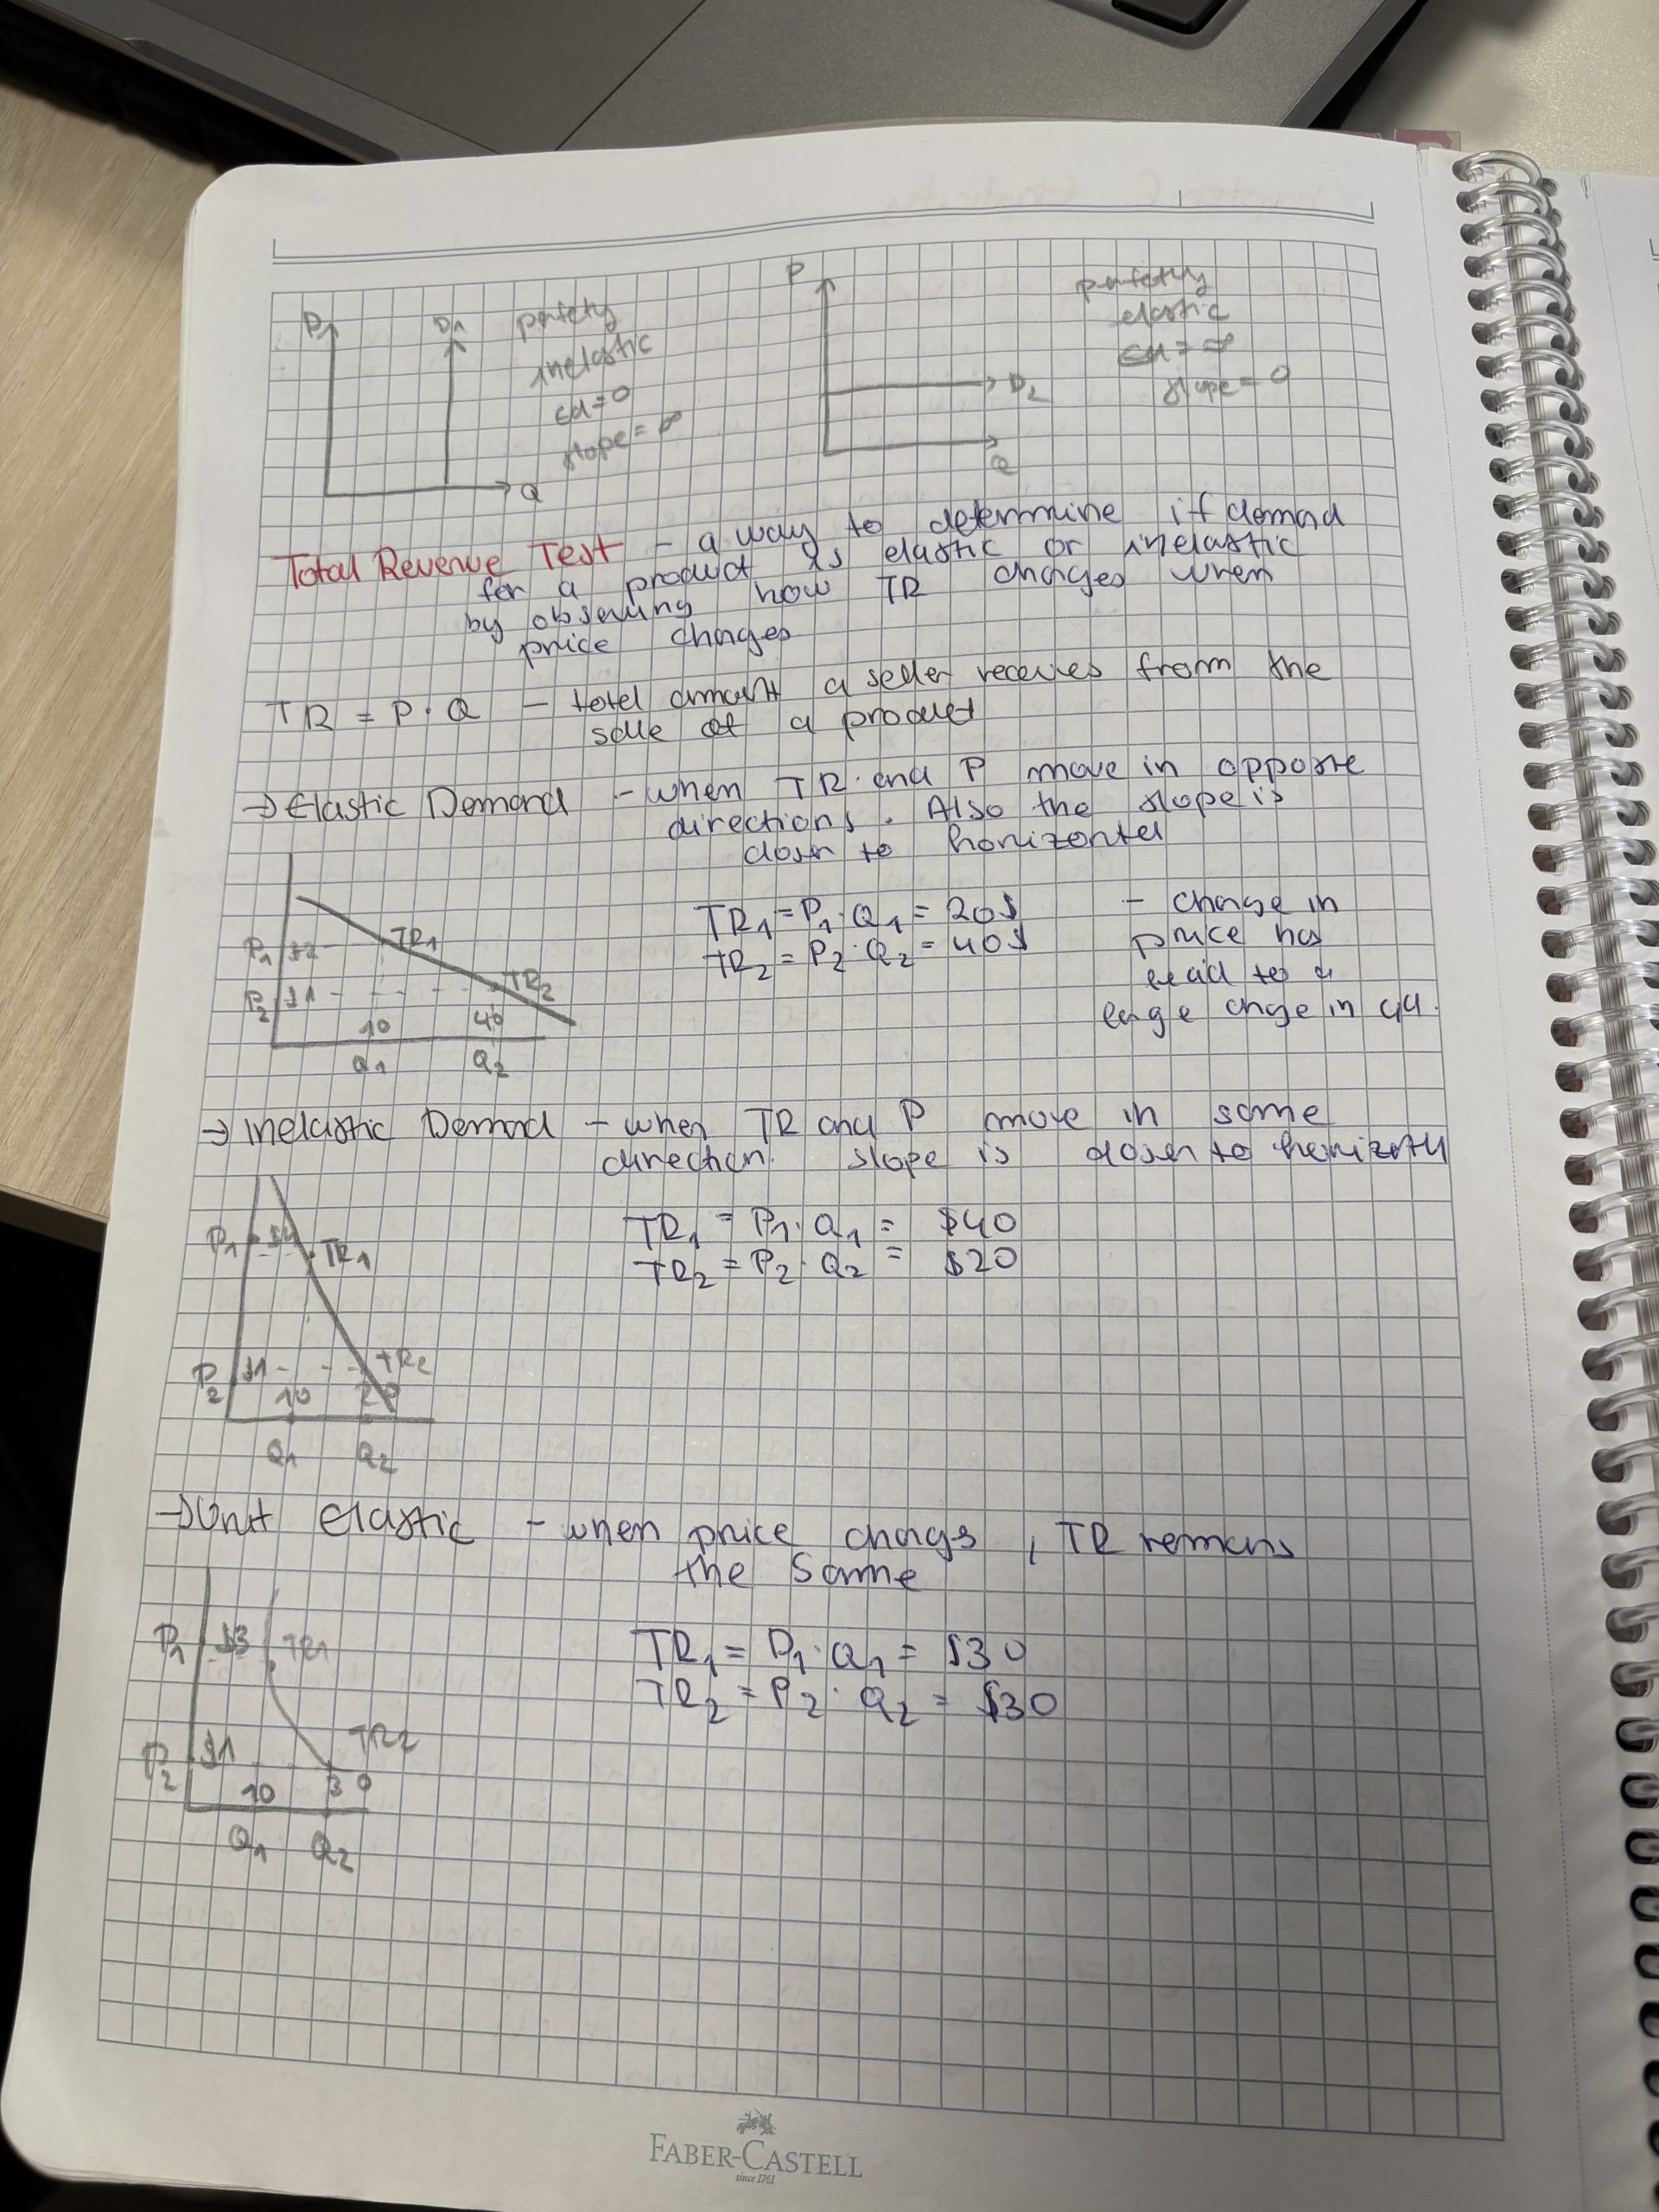 P
D1
perfectly
inelastic
Ed=0
slope=∞
Q
P
D2
Q
perfectly
elastic
Ed=∞
slope=0
Total Revenue Test - a way to determine if demand
for a product is elastic or inelastic
by observing how TR changes when
price changes
TR = P·Q - total amount a seller receives from the
sale of a product
→ Elastic Demand - when TR and P move in opposite
directions. Also the slope is
closer to horizontal
P1 $2 TR1
P2 $1 TR2
10 40
Q1 Q2
TR1 = P1·Q1 = 20$
TR2 = P2·Q2 = 40$
- change in
price has
lead to a
large change in qd.
→ Inelastic Demand - when TR and P move in same
direction. slope is closer to horizontal
P1 $4 TR1
P2 $1 TR2
10 20
Q1 Q2
TR1 = P1·Q1 = $40
TR2 = P2·Q2 = $20
→ Unit elastic - when price changes, TR remains
the same
P1 $3 TR1
P2 $1 TR2
10 30
Q1 Q2
TR1 = P1·Q1 = $30
TR2 = P2·Q2 = $30
FABER-CASTELL
since 1761